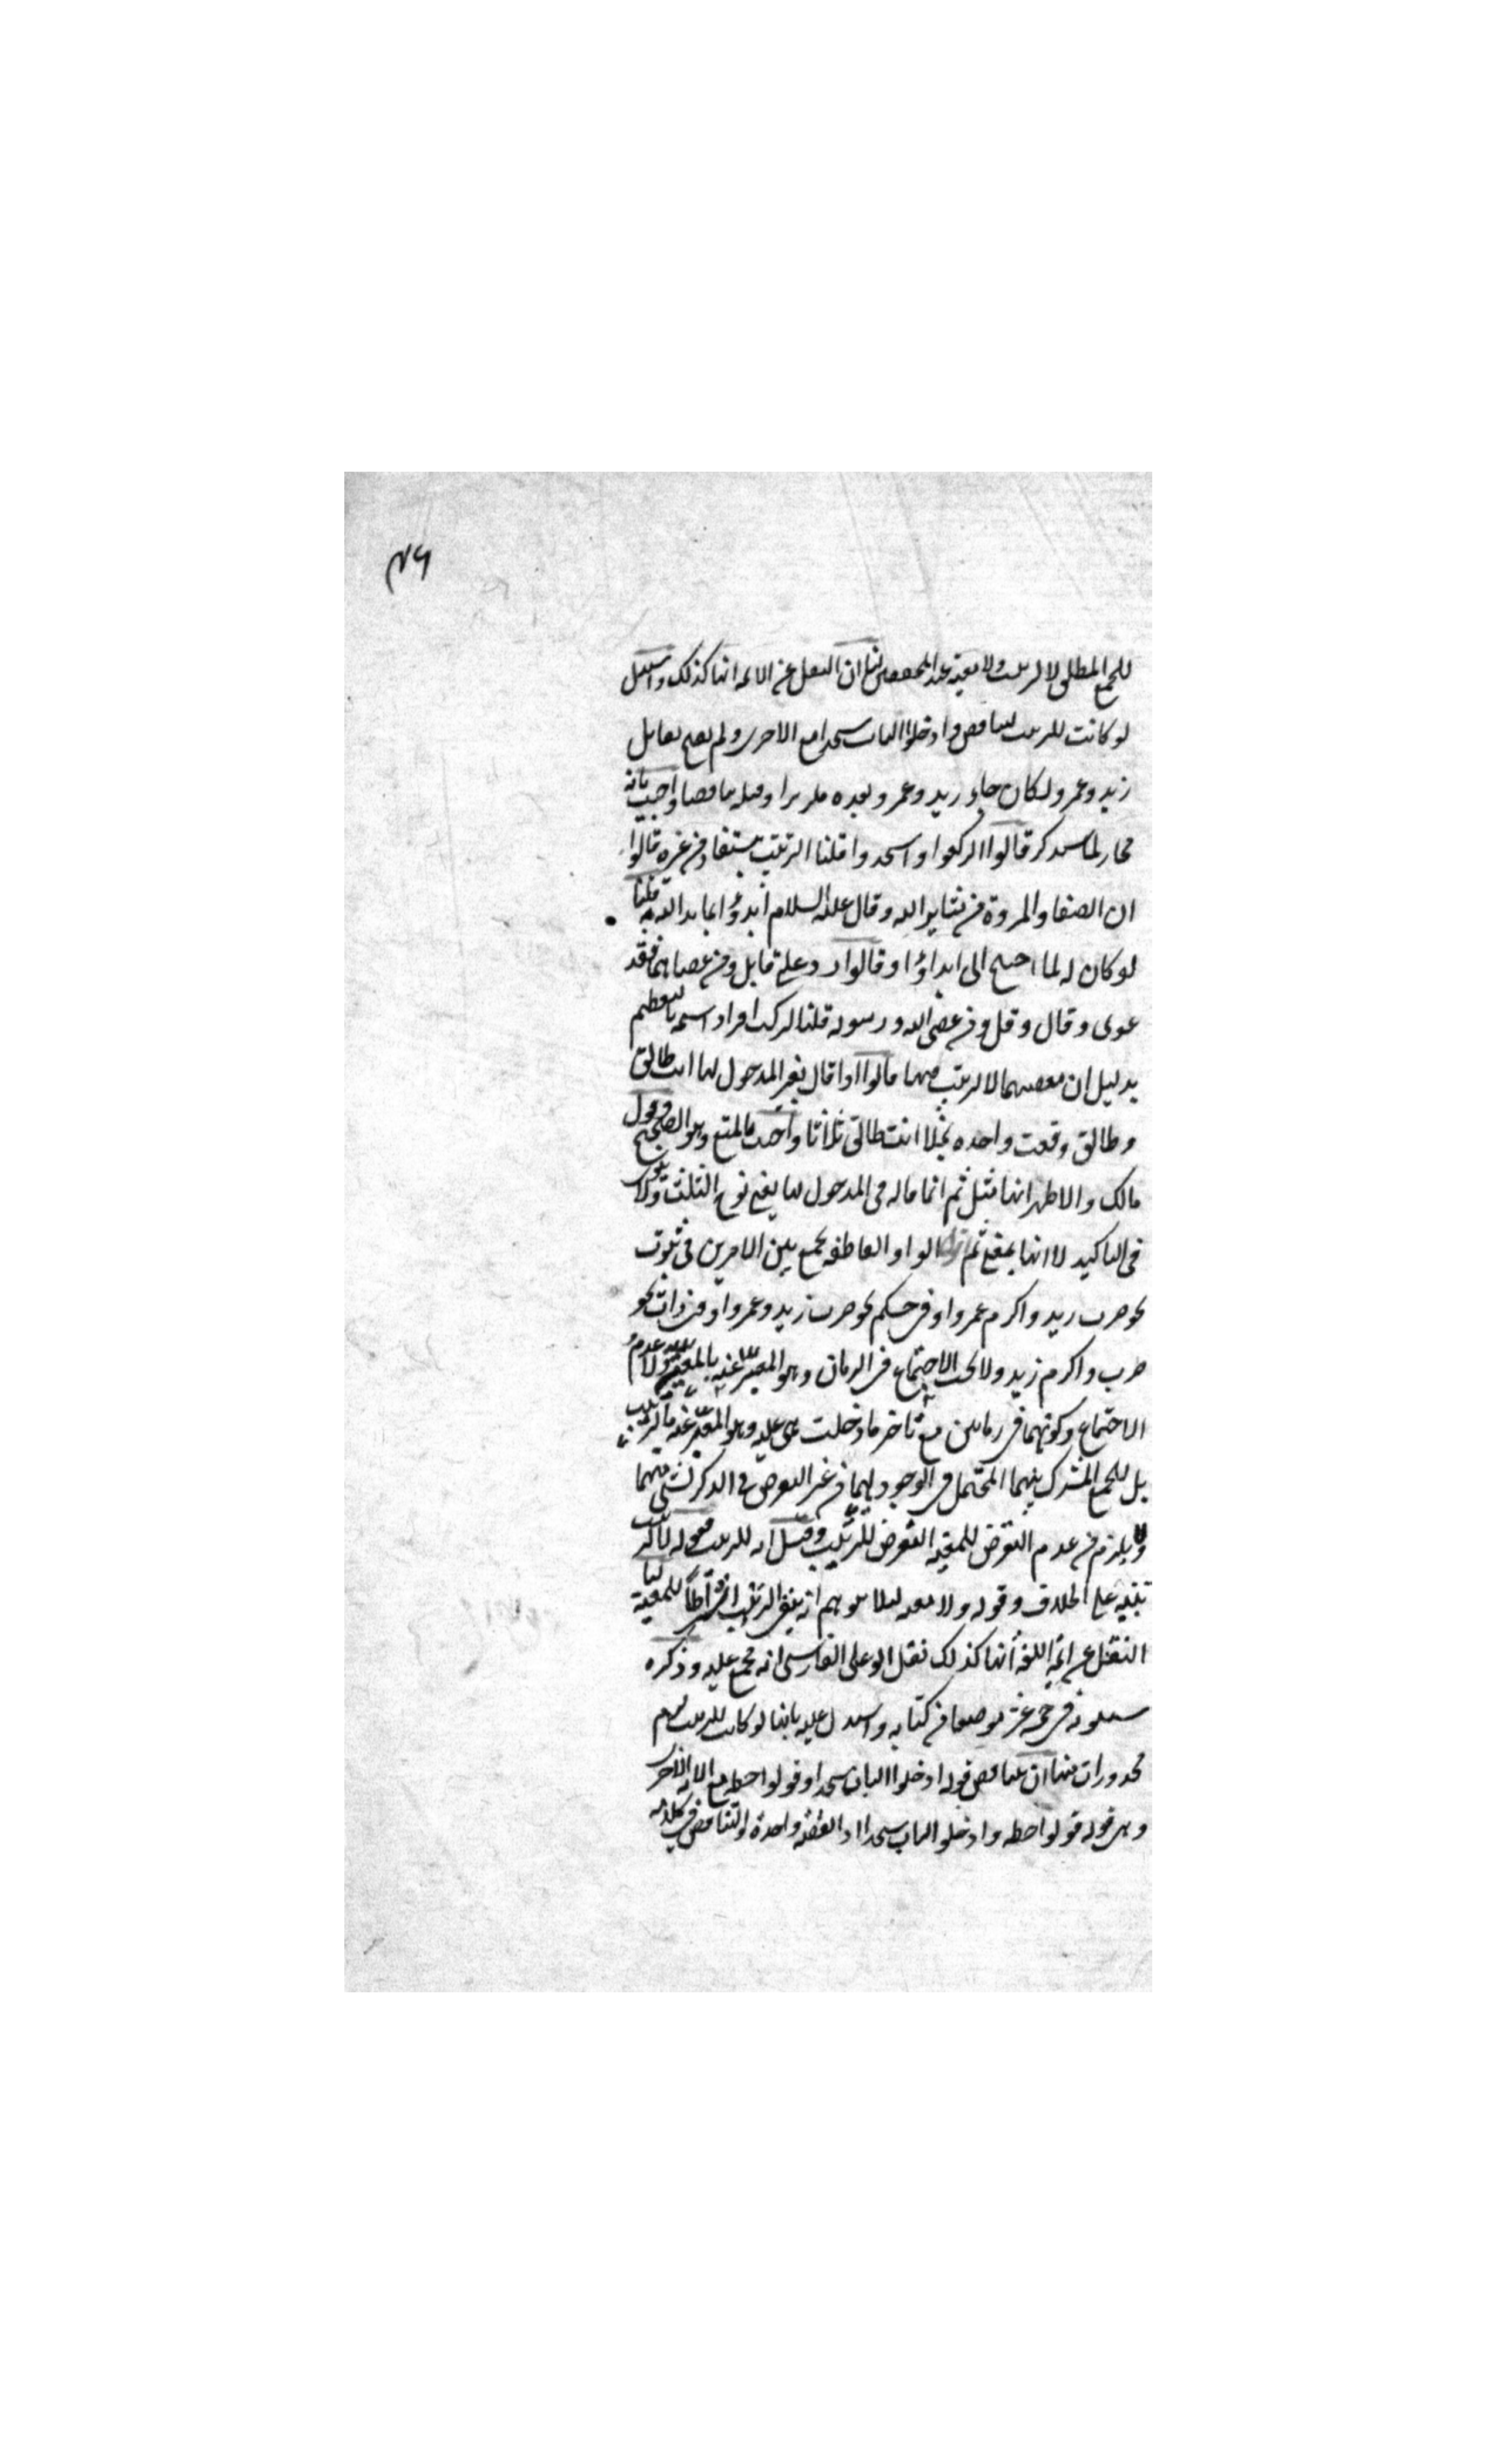 ٤٦
للجمع المطلق لا لترتيب ولا معية عند المحققين لنا ان النقل عن الائمة انها كذلك واستدل
لو كانت للترتيب لتناقض وادخلوا الباب سجدا مع الاخرى ولم يصح تقابل
زيد وعمرو ولكان جاء زيد وعمرو بعده تكريرا وقبله تناقضا واجيب بانه
مجاز لما سنذكر قالوا اركعوا واسجدوا قلنا الترتيب مستفاد من غيره قالوا
ان الصفا والمروة من شعاير الله وقال عليه السلام ابدؤا بما بدا الله به قلنا
لو كان له لما احتيج الى ابداؤا وقالوا رد على قايل ومن عصاهما فقد
غوى وقال وقل ومن عصى الله ورسوله قلنا لترك افراد اسمه بالتعظيم
بدليل ان معصيتهما لا ترتيب فيهما قالوا اذا قال لغير المدخول بها انت طالق
وطالق وقعت واحدة بخلاف انت طالق ثلاثا واجيب بالمنع وهو الصحيح وقول
مالك والاظهر انها مثل ثم انما قاله في المدخول بها يعني نوع الثلث ولا ينوى
في التاكيد لا انها بمعنى ثم الواو العاطفة تجمع بين الامرين في ثبوت
نحو ضرب زيد واكرم عمرو او في حكم نحو ضرب زيد وعمرو او في ذات نحو
ضرب واكرم زيد ولا يجب الاجتماع في الزمان وهو المعبر عنه بالمعية ولا عدم
الاجتماع وكونهما في زمانين مع تاخر ما دخلت هي عليه وهو المعبر عنه بالترتيب
بل للجمع المشترك بينهما المحتمل في الوجود لهما من غير التعرض في الذكر لشي منهما
ولا يلزم من عدم التعرض للمعية التعرض للترتيب وقيل انه للترتيب فقوله لا لترتيب
تنبيه على الخلاف وقوله ولا معية لئلا يتوهم انه ينفي الترتيب اشتراطا للمعية لنا
النقل عن ائمة اللغة انها كذلك نقل ابو على الفارسي انه مجمع عليه وذكره
سيبويه في خمسة عشر موضعا من كتابه واستدل عليه بانها لو كانت للترتيب لزم
محذورات منها ان يتناقض قوله ادخلوا الباب سجدا وقولوا حطة مع الاية الاخرى
وهى قوله قولوا حطة وادخلوا الباب سجدا اذ القصة واحدة والتناقض في كلامه